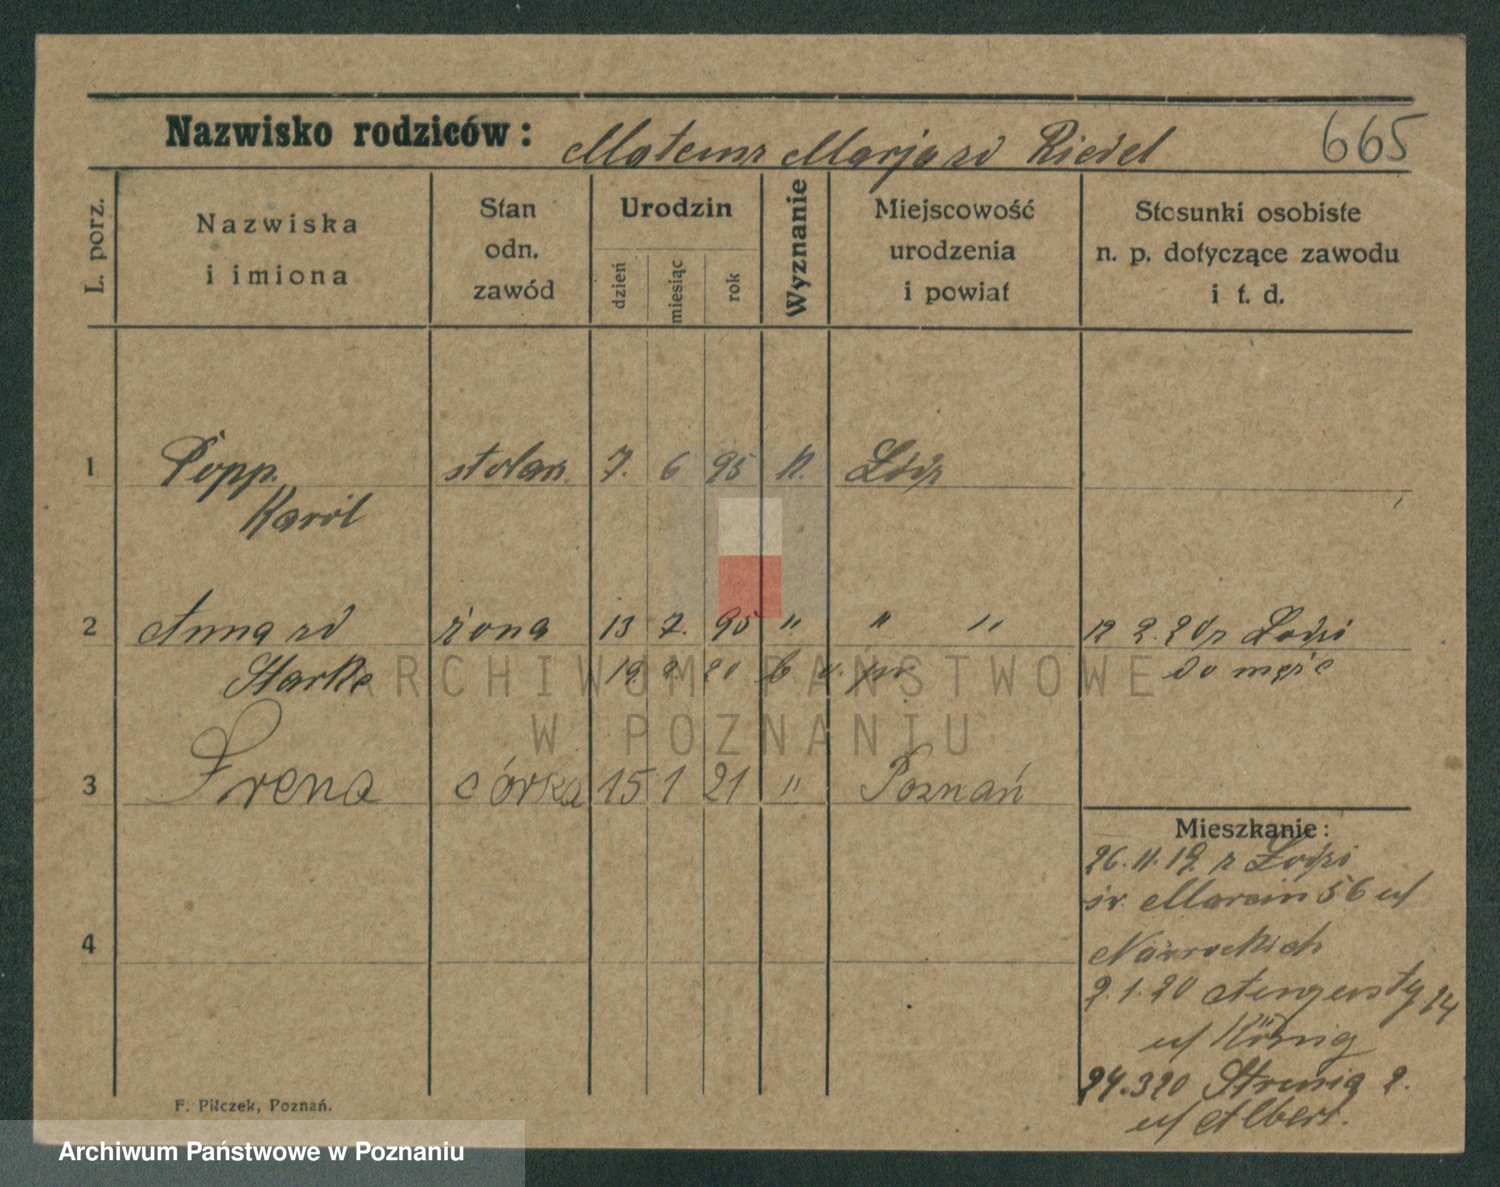 Nazwisko rodziców: Mateusz Marja zd Riedel 665
L. porz.
Nazwiska i imiona
Stan odn. zawód
Urodzin
dzień
miesiąc
rok
Wyznanie
Miejscowość urodzenia i powiat
Stosunki osobiste n. p. dotyczące zawodu i t. d.
1 Popp. stolarz. 7. 6 95 k. Łódź
Karol
2 Anna zd żona 13 7. 95 " " " 12 2. 20 z Łodzi
Starke 19 2. 20 do męża
3 Irena córka 15 1 21 " Poznań
Mieszkanie:
26. 11. 19. z Łodzi
św. Marcin 56 u/
Nawrockich
4
2. 1. 20 24
u/ König
24. 3 20 Strusia 2.
u/ Albert.
F. Pilczek, Poznań.
ARCHIWUM PAŃSTWOWE
W POZNANIU
Archiwum Państwowe w Poznaniu